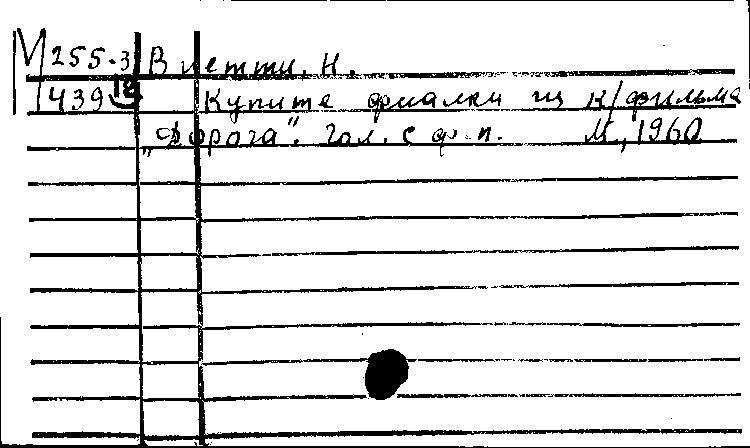 М 255-3 Виетти, Н.
439 18 Купите фиалки из к/фильма
„Дорога". Гол. с ф-п. М., 1960